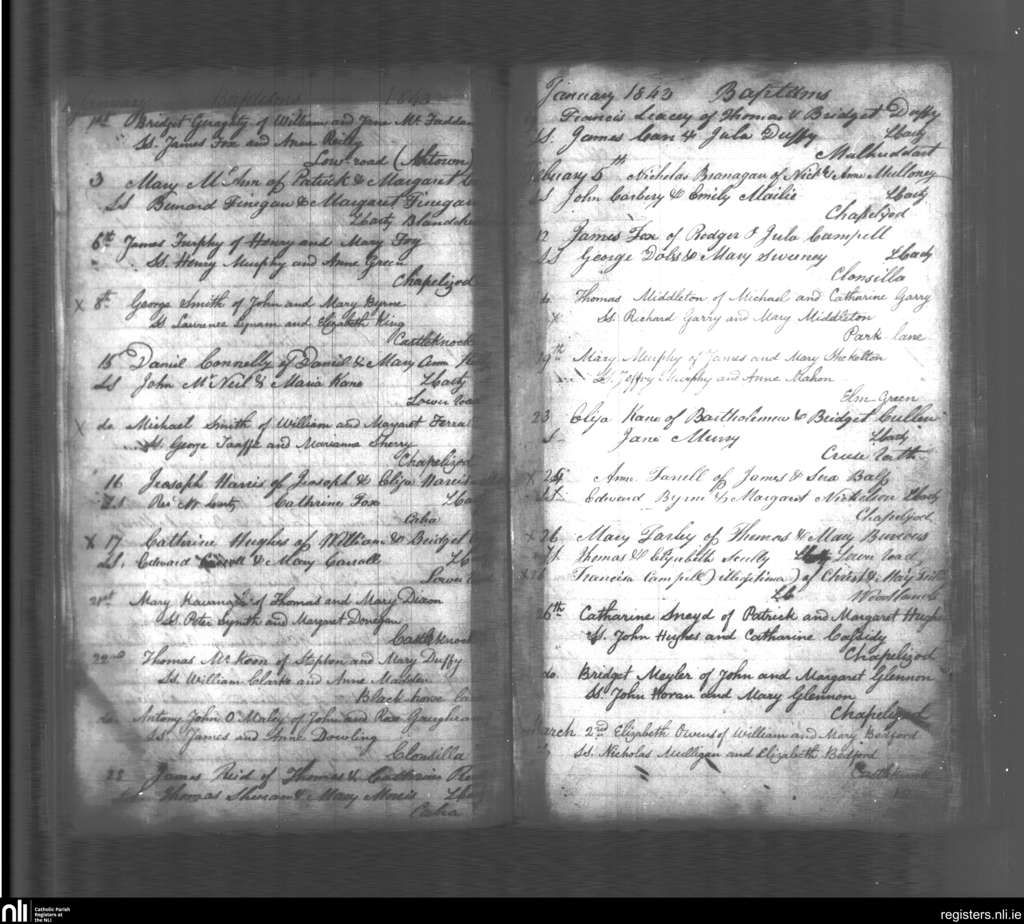 January Baptisms 1843
1st Bridget Geraghty of William and Jane Mc Fadden
Ss. James Fox and Anne Reilly
Low-road (Ashtown)
3 Mary McAnn of Patrick & Margaret
Ss Bernard Finegan & Margaret Finegan
LCarty Blanch
6th James Furphy of Henry and Mary Foy
Ss. Henry Murphy and Anne Green
Chapelizod
x 8th George Smith of John and Mary Byrne
Ss Lawrence Lynam and Elizabeth King
Castleknock
15 Daniel Connelly of Daniel & Mary Ann
Ss John McNeil & Maria Kane LCarty
Lower road
x do Michael Smith of William and Margaret
Ss George Taaffe and Marianne Sherry
Chapelizod
16 Jeosoph Harris of Jeosoph & Eliza Harris
Ss Revd Mr Cathrine Fox
Cabra
x 17 Catherine Hughes of William & Bridget
Ss. Edward & Mary Carroll
Lower
21st Mary Kavanagh of Thomas and Mary Dixon
Ss. Peter Synott and Margaret Donegan
Castleknock
22nd Thomas McKoon of Stephen and Mary Duffy
Ss. William Clarke and Anne Madden
Black horse
do. Antony John O'Maley of John and Rose
Ss. James and Anne Dowling
Clonsilla
28 James Reid of Thomas & Catharine
Thomas Sheran & Mary Morris
Cabra
January 1843 Baptisms
Francis Leacey of Thomas & Bridget Duffy
Ss. James Carr & Jula Duffy LCarty
Mulhuddart
February 5th Nicholas Branagan of Nichs & Ann Mulloney
Ss John Carbery & Emily Mailie LCarty
Chapelzod
12 James Fox of Rodger & Jula Campell
Ss George Dobs & Mary Sweeney LCarty
Clonsilla
Thomas Middleton of Michael and Catharine Garry
x Ss. Richard Garry and Mary Middleton
Park-lane
19th Mary Murphy of James and Mary Shekelton
Ss. Jeffry Murphy and Anne Mahon
Elm-Green
23 Eliza Kane of Bartholemew & Bridget Cullen
S Jane Murry LCarty
Cruse rath
x 24 Ann Farrell of James & Sera Balf
Ss. Edward Byrne & Margaret Nickelson LCarty
Chapelzod
x 26 Mary Farley of Thomas & Mary Burrows
Thomas & Elizabeth Scully Lower road
x 26 Francisca Campell of Christ. & Mary
LC Woodlands
26th Catharine Sneyd of Patrick and Margaret Hughes
Ss. John Hughes and Catharine Cassidy
Chapelizod
do. Bridget Meyler of John and Margaret Glennon
Ss John Horan and Mary Glennon
Chapelizod
March 2nd Elizabeth Owens of William and Mary Bedford
Ss. Nicholas Mulligan and Elizabeth Bedford
Castleknock
nli Catholic Parish
Registers at
the NLI
registers.nli.ie